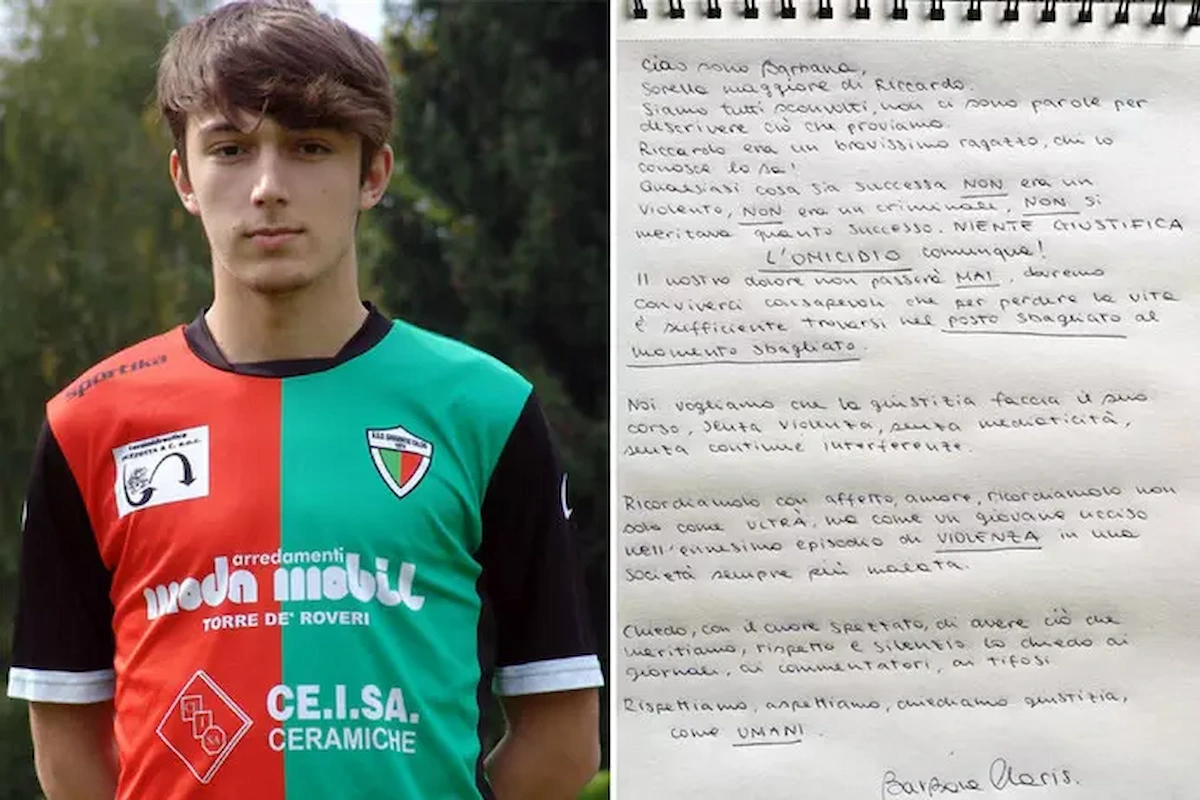 sportika
arredamenti
moda mobil
TORRE DE' ROVERI
CE.I.SA.
CERAMICHE
Ciao sono Barbara,
Sorella maggiore di Riccardo.
Siamo tutti sconvolti, non ci sono parole per
descrivere ciò che proviamo.
Riccardo era un bravissimo ragazzo, chi lo
conosce lo sa!
Qualsiasi cosa sia successa NON era un
violento, NON era un criminale, NON si
meritava quanto successo. NIENTE GIUSTIFICA
L'OMICIDIO comunque!
Il nostro dolore non passerà MAI, dovremo
conviverci consapevoli che per perdere la vita
è sufficiente trovarsi nel posto sbagliato al
momento sbagliato.
Noi vogliamo che la giustizia faccia il suo
corso, senza violenza, senza mediaticità,
senza continue interferenze.
Ricordiamolo con affetto, amore, ricordiamolo non
solo come ULTRÀ, ma come un giovane ucciso
nell'ennesimo episodio di VIOLENZA in una
società sempre più malata.
Chiedo, con il cuore spezzato, di avere ciò che
meritiamo, rispetto e silenzio. Lo chiedo ai
giornali, ai commentatori, ai tifosi
Rispettiamo, aspettiamo, chiediamo giustizia,
come UMANI.
Barbara Claris.